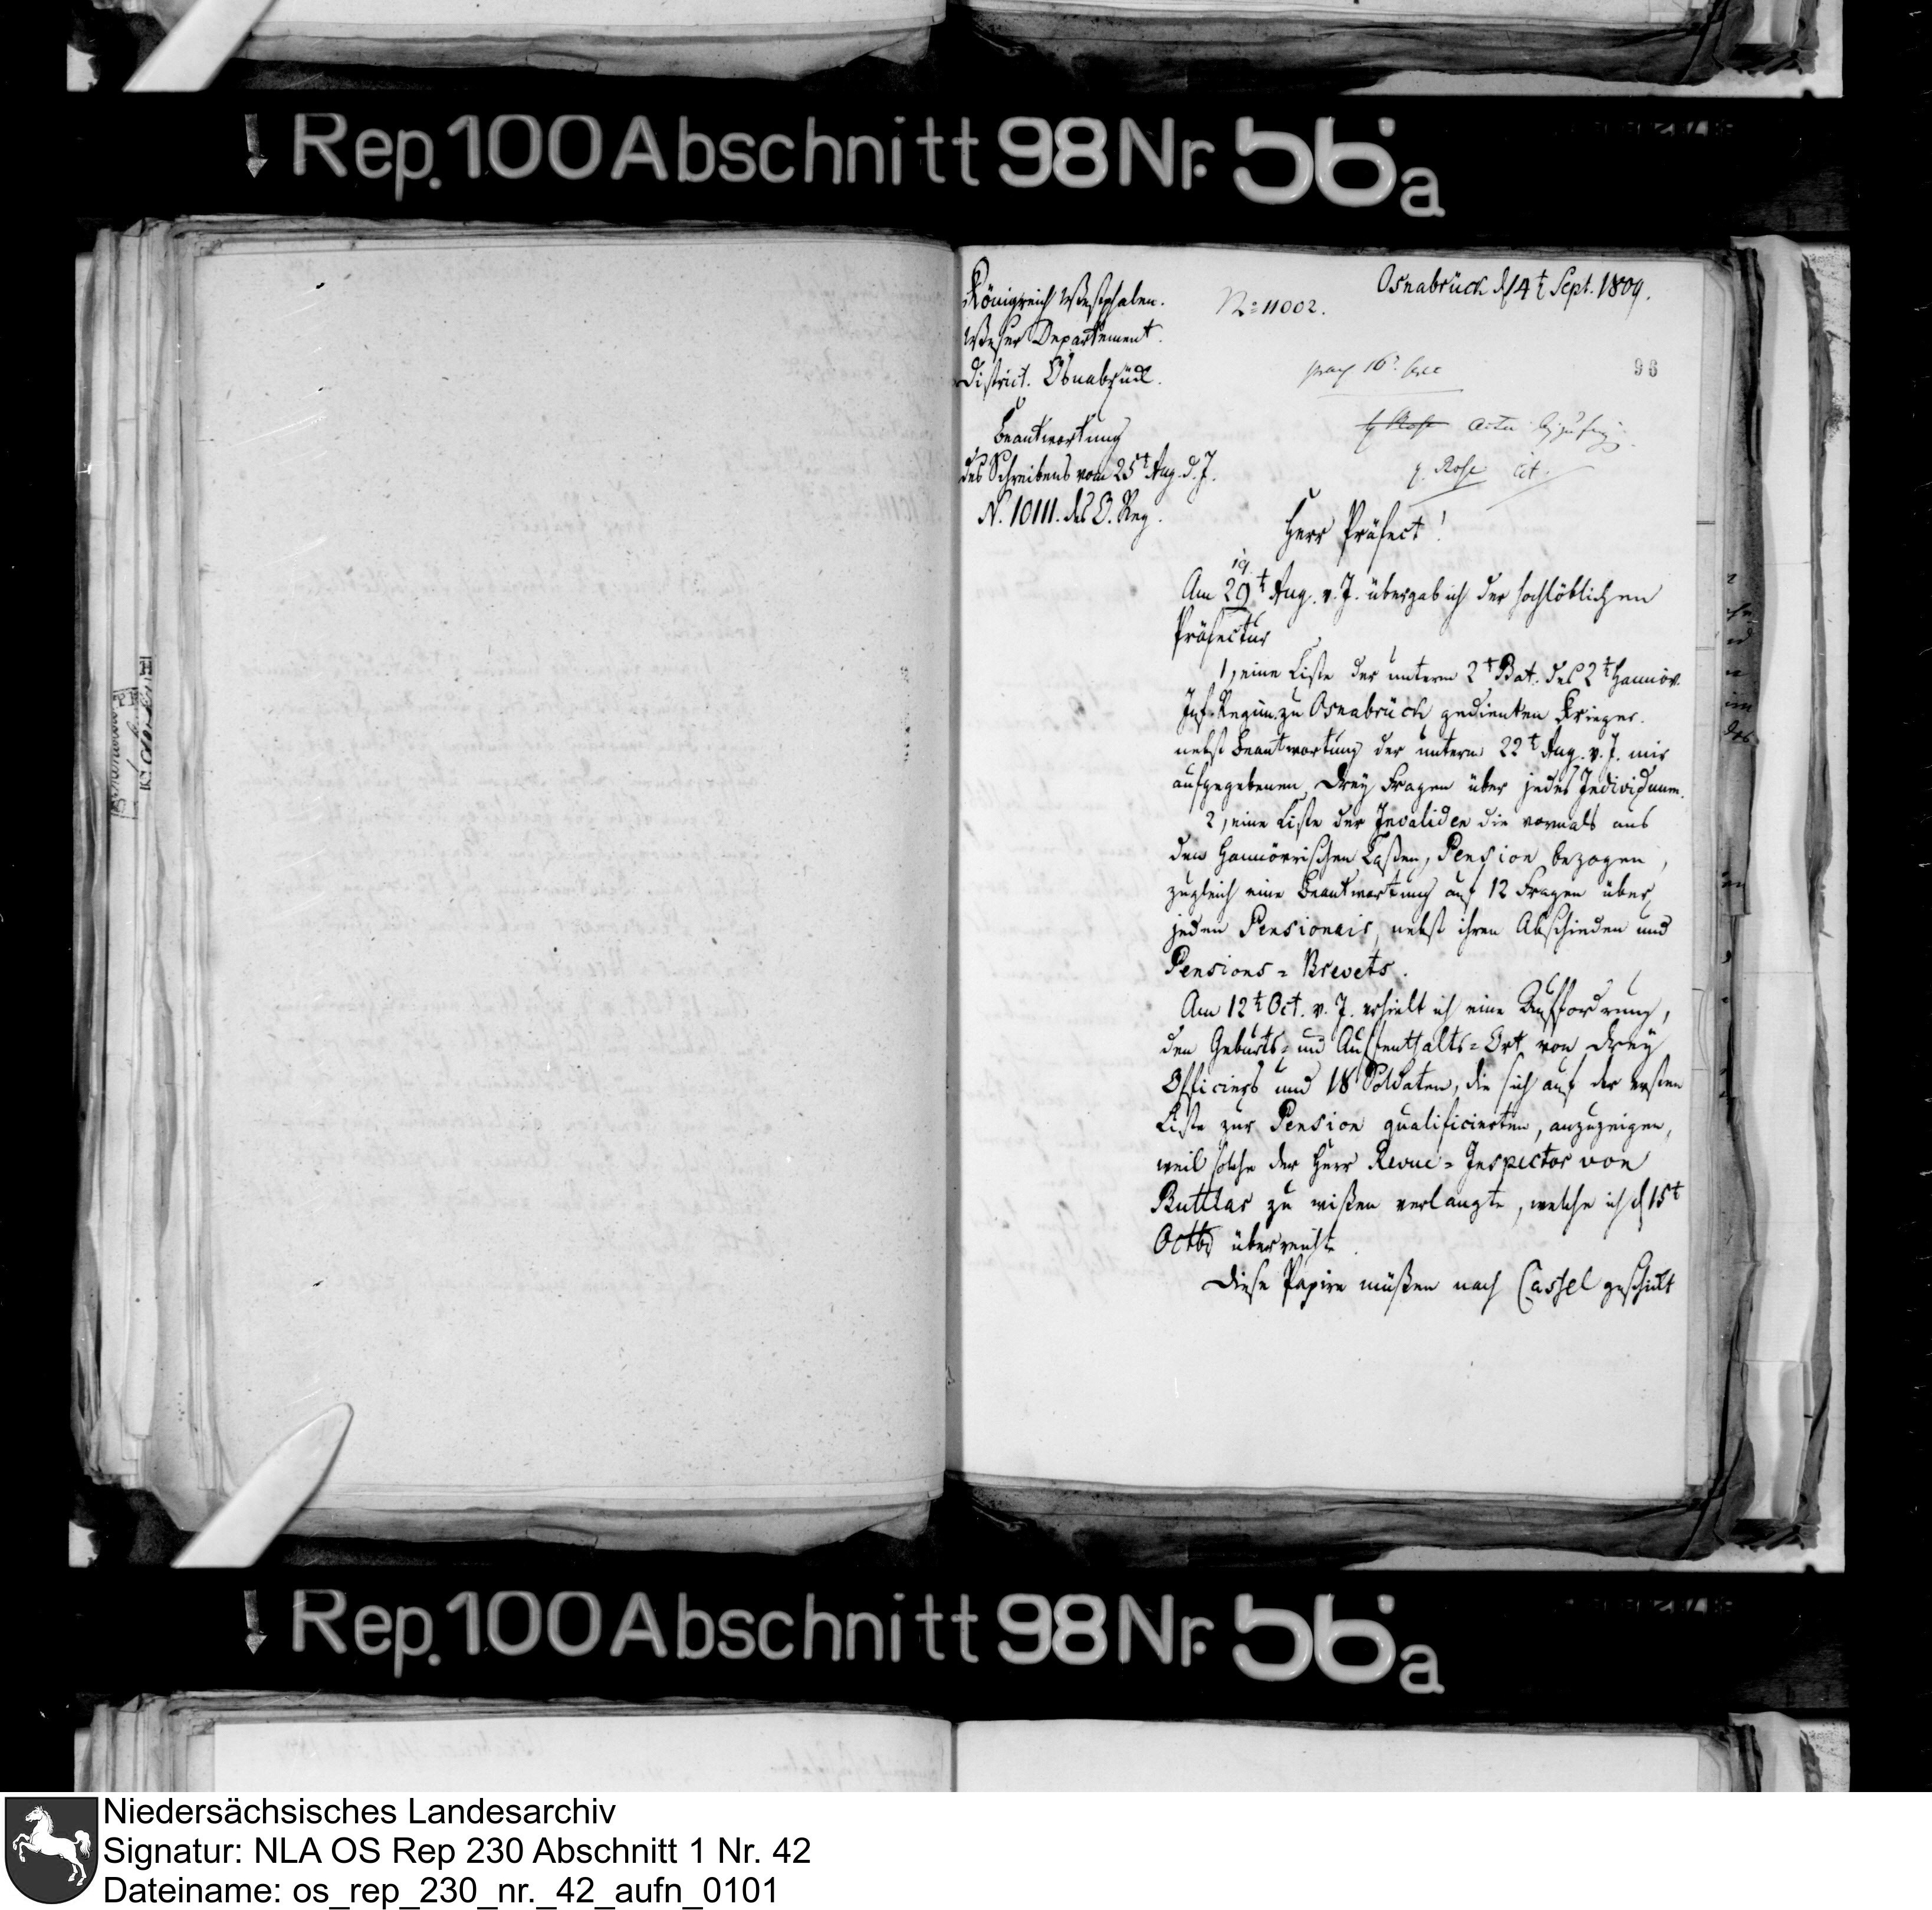 Rep. 100 Abschnitt 98 Nr. 56a
Königreich Westphalen.
Weser Departement.
District. Osnabrück.
Beantwortung
des Schreibens vom 25t Aug. d. J.
N. 10111. des B. Reg.
No 11002.
Osnabrück d 14t Sept. 1809.
96
Acta
q. Rose cit.
Herr Präfect!
Am 29t Aug. v. J. übergab ich der hochlöblichen
19.
Präfectur
1, eine Liste der unterm 2t Bat. des 2t Hannöv.
Inf. Regim. zu Osnabrück gedienten Krieger.
nebst Beantwortung der unterm 22t Aug. v. J. mir
aufgegebenen Drey Fragen über jedes Individuum.
2, eine Liste der Invaliden die vormals aus
den Hannövrischen Caßen, Pension bezogen,
zugleich eine Beantwortung auf 12 Fragen über
jeden Pensionair, nebst ihren Abschieden und
Pensions-Brevets.
Am 12t Oct. v. J. erhielt ich eine Aufforderung,
den Geburts- und Aufenthalts-Ort von Drey
Officiers und 18 Soldaten, die sich auf der ersten
Liste zur Pension qualificirten, anzuzeigen,
weil solche der Herr Revue-Inspector von
Buttlar zu wißen verlangte, welche ich d 15t
Octbr überreichte.
Diese Papire müßen nach Cassel geschickt
Rep. 100 Abschnitt 98 Nr. 56a
Niedersächsisches Landesarchiv
Signatur: NLA OS Rep 230 Abschnitt 1 Nr. 42
Dateiname: os_rep_230_nr._42_aufn_0101